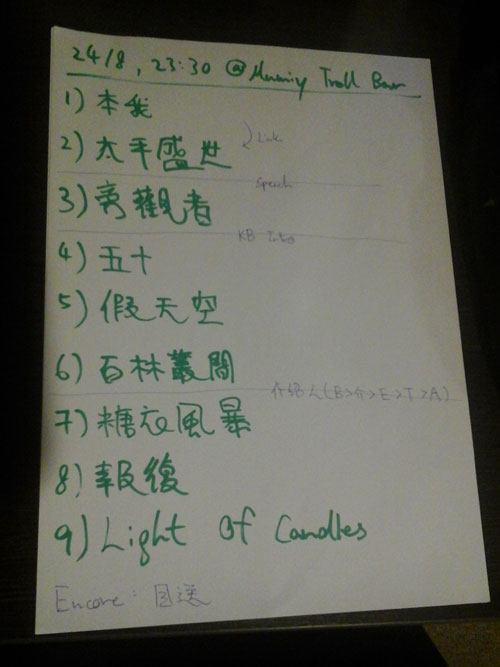 24/8, 23:30 @ Hummingy Troll Bar
1) 本我
2) 太平盛世
Link
Speech
3) 旁觀者
KB Intro
4) 五十
5) 假天空
6) 石林叢間
介紹人(B>介>E>T>A)
7) 糖衣風暴
8) 報復
9) Light Of Candles
Encore: 目送